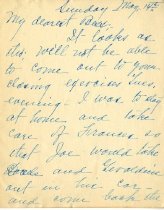 Sunday May 14th
My dearest
It looks as
tho I will not be able
to come out to your
closing exercises this
evening - I was to stay
at home and take
care of Frances so
that Joe would take
and Geraldine
out in his car -
and come back the